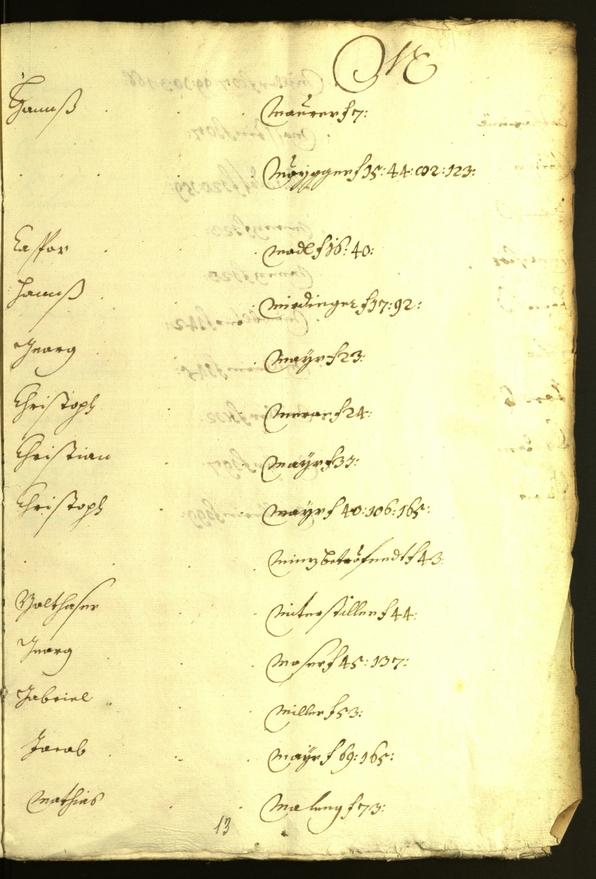 M
Hannß Maurer f 7:
f 15: 44: 102: 123:
Caspar Madl f 16: 40:
Hannß Mirdinger f 17: 92:
Georg Mayr f 23:
Christoph f 24:
Christian Mayr f 33:
Christoph Mayr f 40: 106: 165:
f 43
Balthasar Mitterstiller f 44:
Georg Moser f 45: 137:
Gabriel Miller f 53:
Jacob Mayr f 69: 165:
Mathias f 73:
13